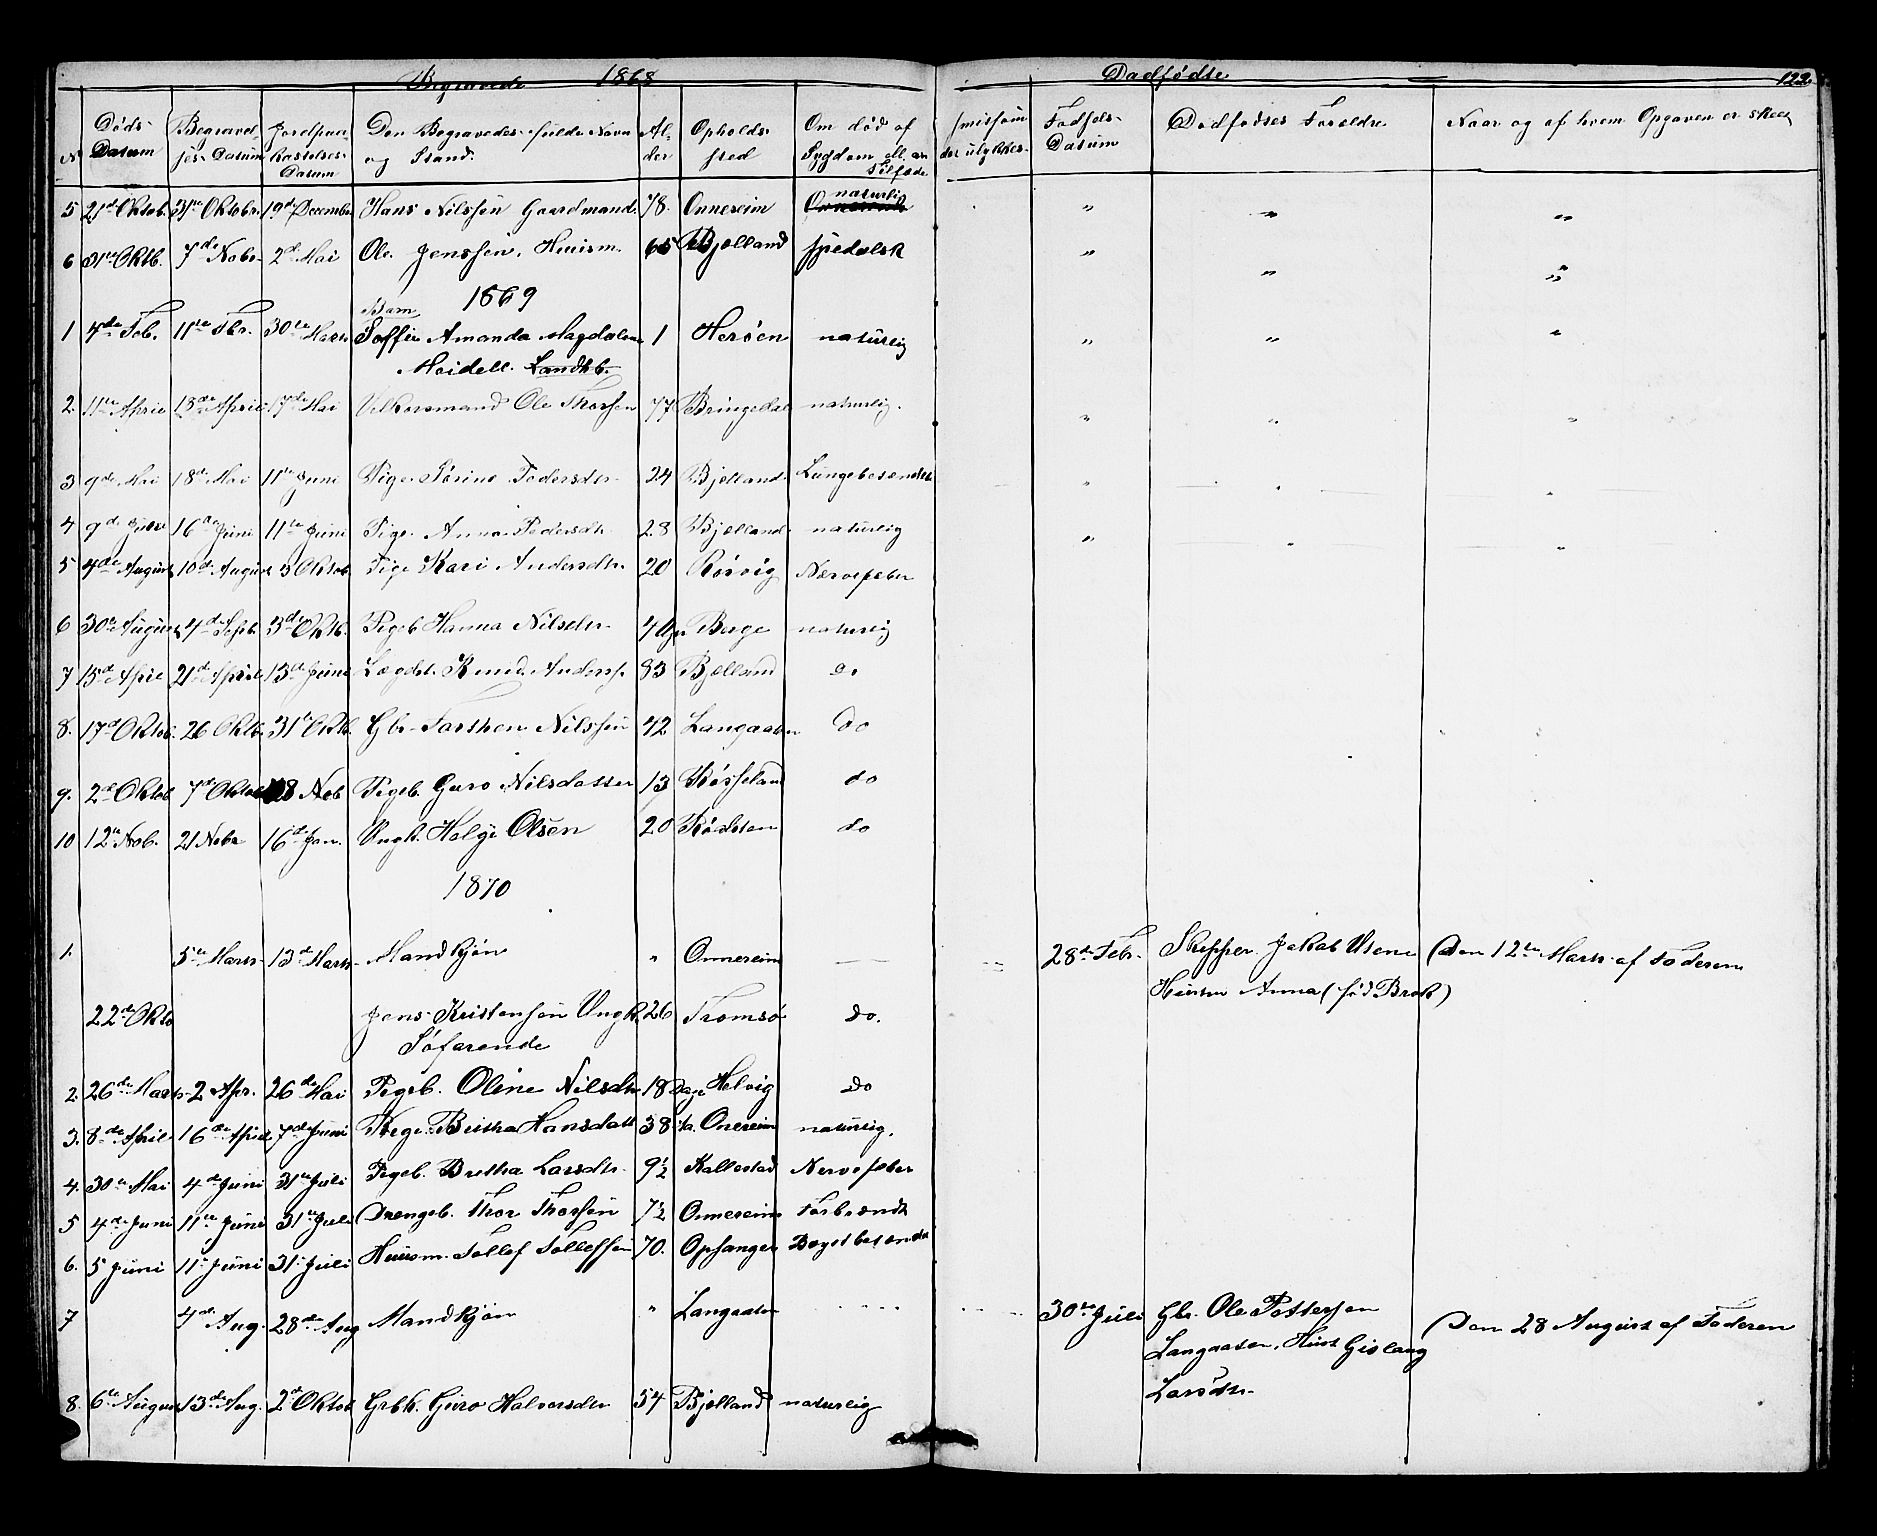 Begravede 1868 Dødfødte 122
No Døds-Datum Begravelses-Datum Jordpaakastelses-Datum Den Begravedes fulde Navn og Stand. Alder Opholdssted Om død af Sygdom ell. anTilfæde smitsom der ulykkes- Fødsels-Datum Dødfødtes Forældre Naar og af hvem Opgaven er skeet
5 21de Oktob. 31te Oktobr. 19de December Hans Nilssøn Gaardmand. 78. Onnereim naturlig " " "
6 31te Oktb. 7de Nobr. 2de Mai Ole Jenssøn, Huusm. 65 Bjelland spedalsk " " "
1869
1 4de Feb. 11te Fbr. 30te Marts Barn Soffie Amanda Magdalena 1 Herøen naturlig " " "
Meidell. Landhb.
2. 11te April 18de April 17de Mai Ole Thorsen 77 Bringedal naturlig. " " "
3 9de Mai 18de Mai 11te Juni Pige Sørine Pedersdtr. 24 Bjelland Lungebetændelse " " "
4 9de Juni 16de Juni 11te Juni Pige Anna Pedersdtr 28 Bjelland naturlig " " "
5 4de August 10de August 3 Oktob. Pige Kari Andersdtr. 20 Rørvig Nervefeber
6 30te August 4de Septb. 3de Oktb. Pigeb. Hanna Nilsdtr. Berge naturlig
7 15de April 21de April 13de Juni Lægdsl. Knud Anderss. 83 Bjelland do
8. 17de Oktob. 26 Oktb. 31te Oktb. Gbr. Torsten Nilssøn 42 Langaasen Do
9. 2de Oktob 7de Oktob 28 Nob Pigeb. Guro Nilsdatter 13 Røsseland do
10 12te Nob. 21 Nobr 16de Jan. Ungk. Helge Olsen 20 do
1870
1. 5te Marts 13de Marts Mandkjøn " Onnereim 28de Febr. Skipper Jakob Olsen Den 12te Marts af Faderen
Hustru Anna (fød Brok)
22de Okto Jens Kristensen Ungk. 26 Tromsø do.
Søfarende
2. 26de Marts 2 Apr. 26de Mai Pigeb. Oline Nilsdtr 18 Dage Helvig do
3. 8de April 16de April 7de Juni Pige Britha Hansdatt 38 Onereim naturlig.
4. 30te Mai 4de Juni 31te Juli Pigeb. Bretha Larsdtr. 9½ Kallestad Nervefeber
5 4de Juni 11te Juni 31te Juli Drengeb. Thor Thorsøn 7½ Onnereim Forbrændt
6. 5 Juni 11te Juni 31te Juli Huusm. Tollef Tollefsen 70. Opsanger Brystbetændel
7 4de Aug. 28de Aug Mandkjøn " Langaasen 30te Juli Gbr. Ole Pettersen Den 28 August af Faderen
Langaasen, Hust Gislaug
Larsdtr.
8. 6te August 13de Aug. 2de Oktob Grbk. Guro Halvorsdtr 54 Bjelland naturlig